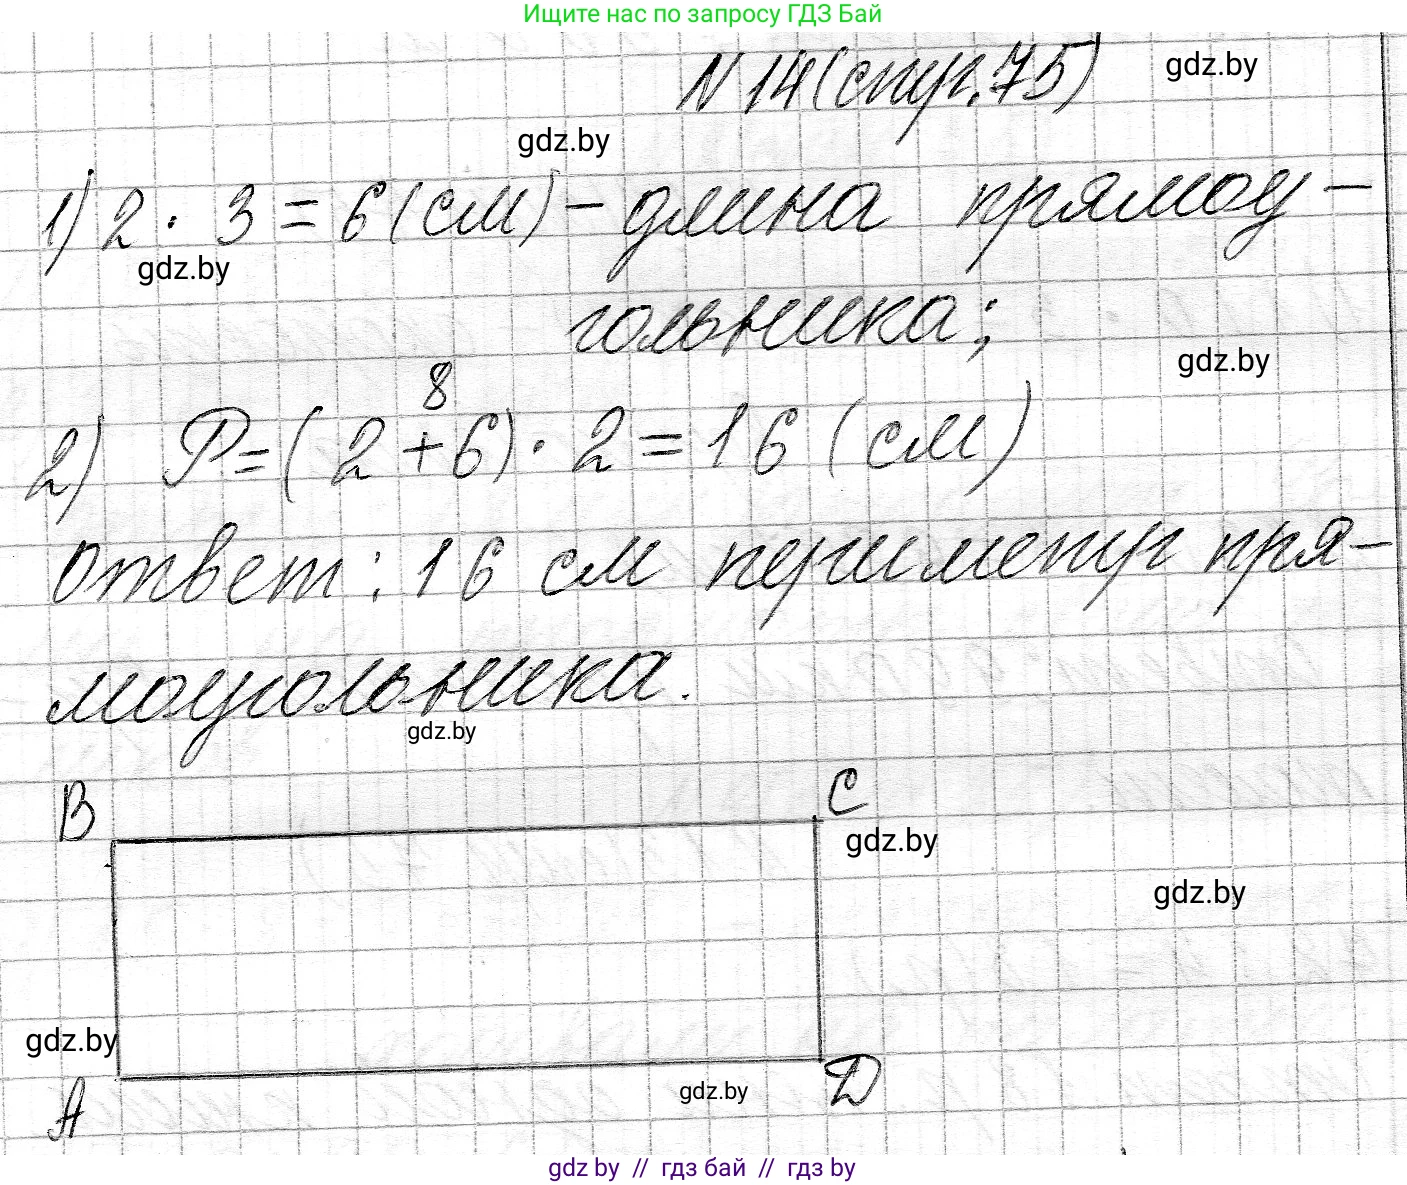 Ищите нас по запросу ГДЗ Бай
N 14 (стр. 75)
gdz.by
gdz.by
1) 2 · 3 = 6 (см) – длина прямоу-
gdz.by
гольника;
gdz.by
8
2) P = (2 + 6) · 2 = 16 (см)
Ответ: 16 см периметр пря-
моугольника.
gdz.by
B
C
gdz.by
gdz.by
gdz.by
A
D
gdz.by
gdz.by // гдз бай // гдз by